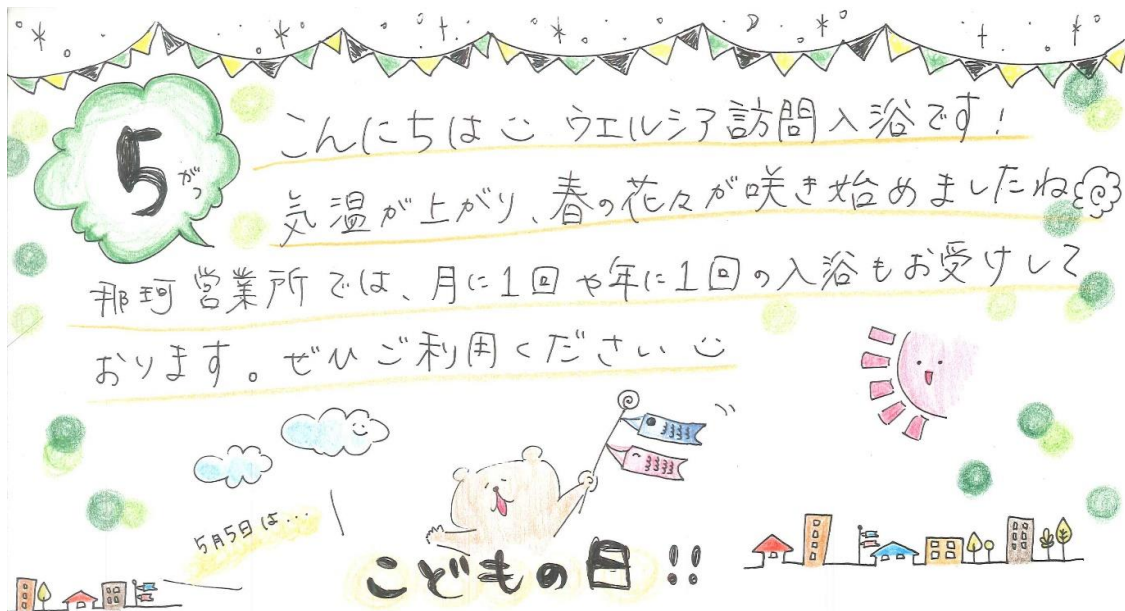 5がつ
こんにちは ウエルシア訪問入浴です!
気温が上がり、春の花々が咲き始めましたね
那珂営業所では、月に1回や年に1回の入浴もお受けして
おります。ぜひご利用ください
5月5日は...
こどもの日!!